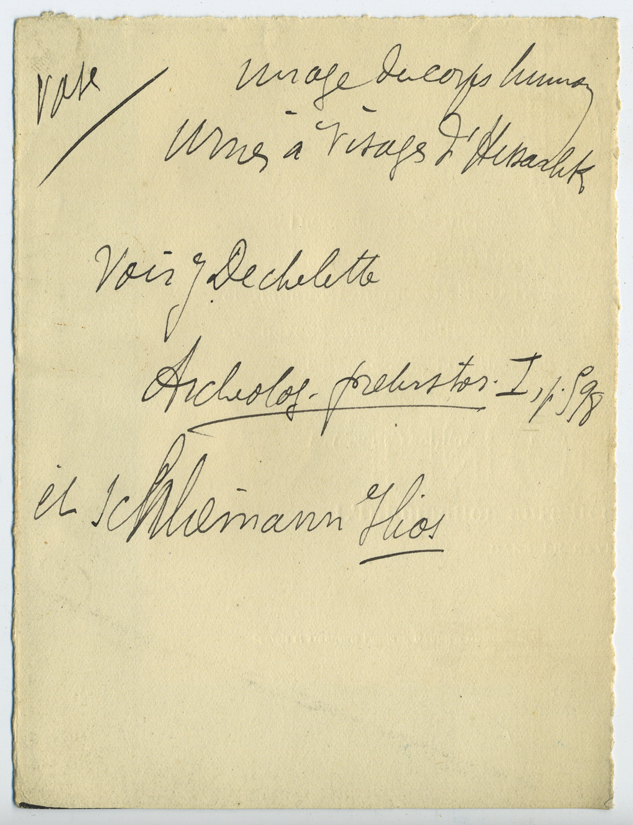 Vase / image du corps humain
Urnes à visages d'Hissarlik
Voir J Dechelette
Archeolog. prehistor. I, p. 598
et Schliemann Ilios